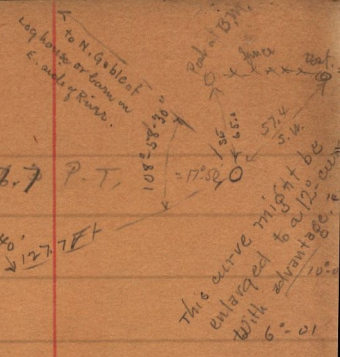 to N. Gable of
log house or barn on
E. side of River.
Post at B.M.
fence
Post.
108°-58'-30"
135
65°
57.4
S.W.
6.7 P.T.
=17°50'
40'
127.7 ft
This curve might be
enlarged to a 12° cu
with advantage.
10°
6°-01